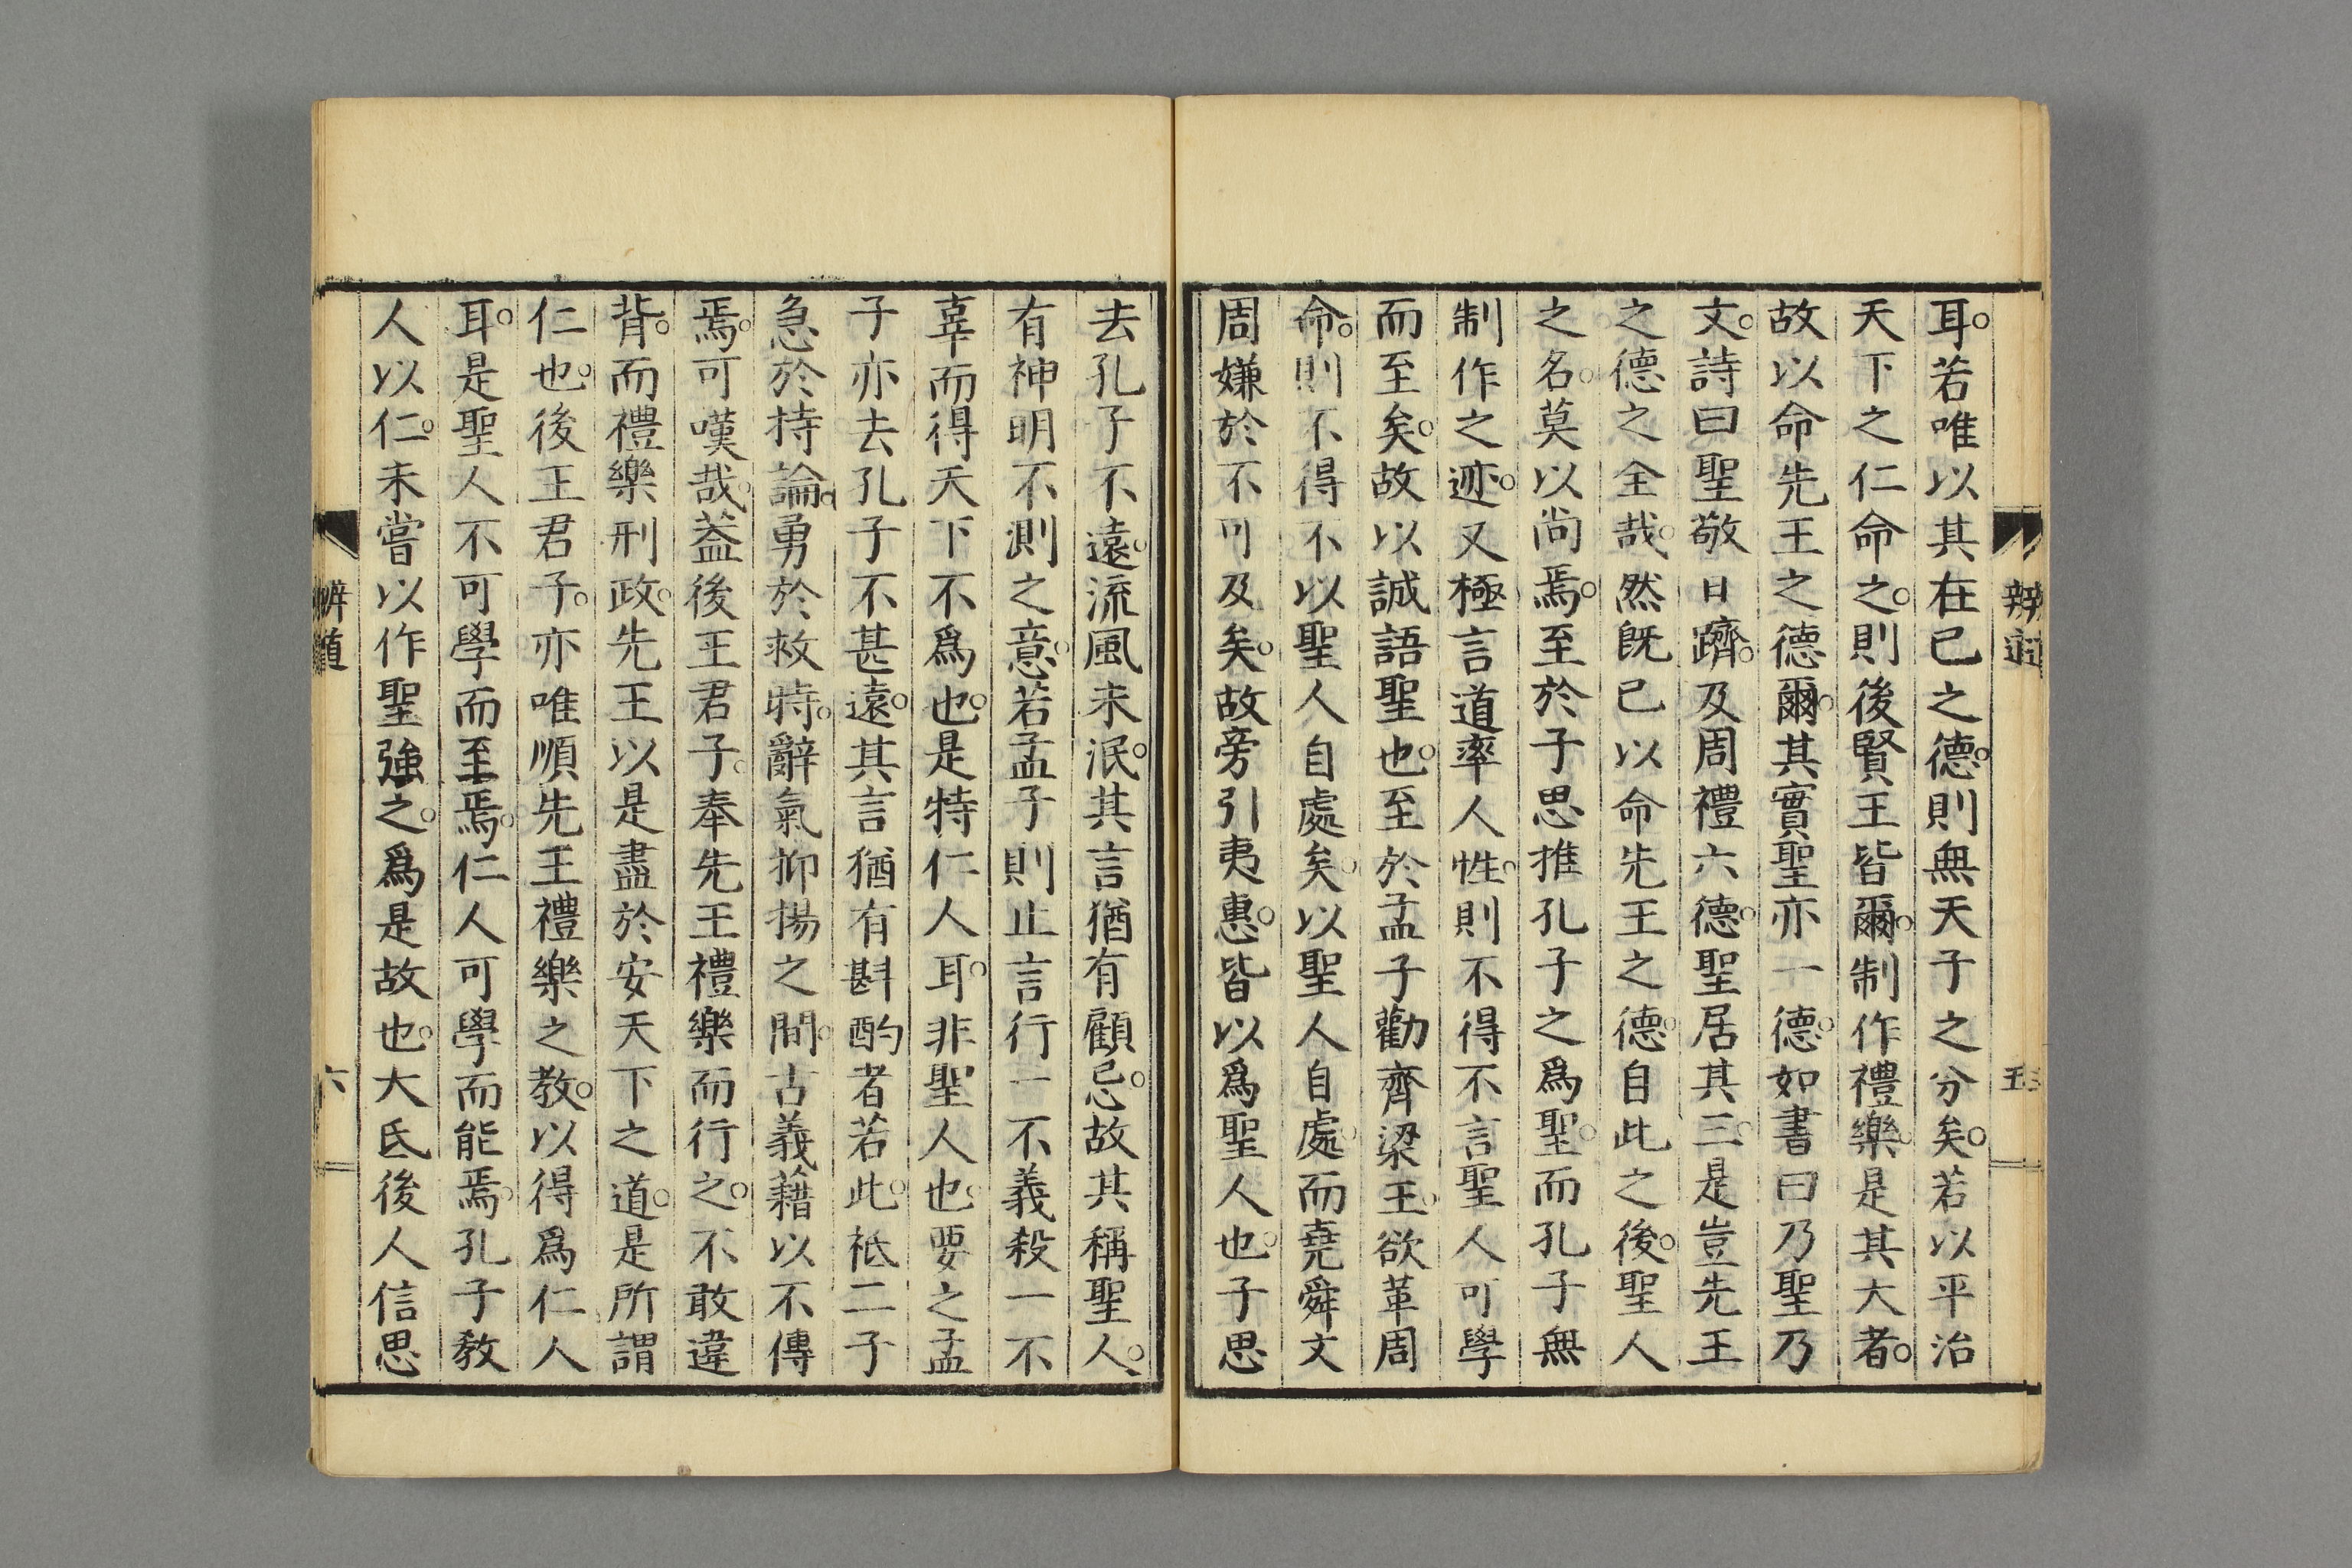 辨道
五
耳。若唯以其在已之德。則無天子之分矣。若以平治
天下之仁命之。則後賢王皆爾。制作禮樂。是其大者。
故以命先王之德爾。其實聖亦一德。如書曰乃聖乃
文。詩曰聖敬日躋。及周禮六德。聖居其三。是豈先王
之德之全哉。然既已以命先王之德。自此之後。聖人
之名。莫以尚焉。至於子思推孔子之爲聖。而孔子無
制作之迹。又極言道率人性。則不得不言聖人可學
而至矣。故以誠語聖也。至於孟子勸齊梁王。欲革周
命。則不得不以聖人自處矣。以聖人自處。而堯舜文
周嫌於不可及矣。故旁引夷惠。皆以爲聖人也。子思
去孔子不遠。流風未泯。其言猶有顧忌。故其稱聖人。
有神明不測之意。若孟子則止言行一不義殺一不
辜而得天下不爲也。是特仁人耳。非聖人也。要之孟
子亦去孔子不甚遠。其言猶有斟酌者若此。祗二子
急於持論。勇於救時。辭氣抑揚之間。古義藉以不傳
焉。可嘆哉。蓋後王君子。奉先王禮樂而行之。不敢違
背。而禮樂刑政。先王以是盡於安天下之道。是所謂
仁也。後王君子。亦唯順先王禮樂之教。以得爲仁人
耳。是聖人不可學而至焉。仁人可學而能焉。孔子教
人以仁。未嘗以作聖強之。爲是故也。大氐後人信思
辨道
六